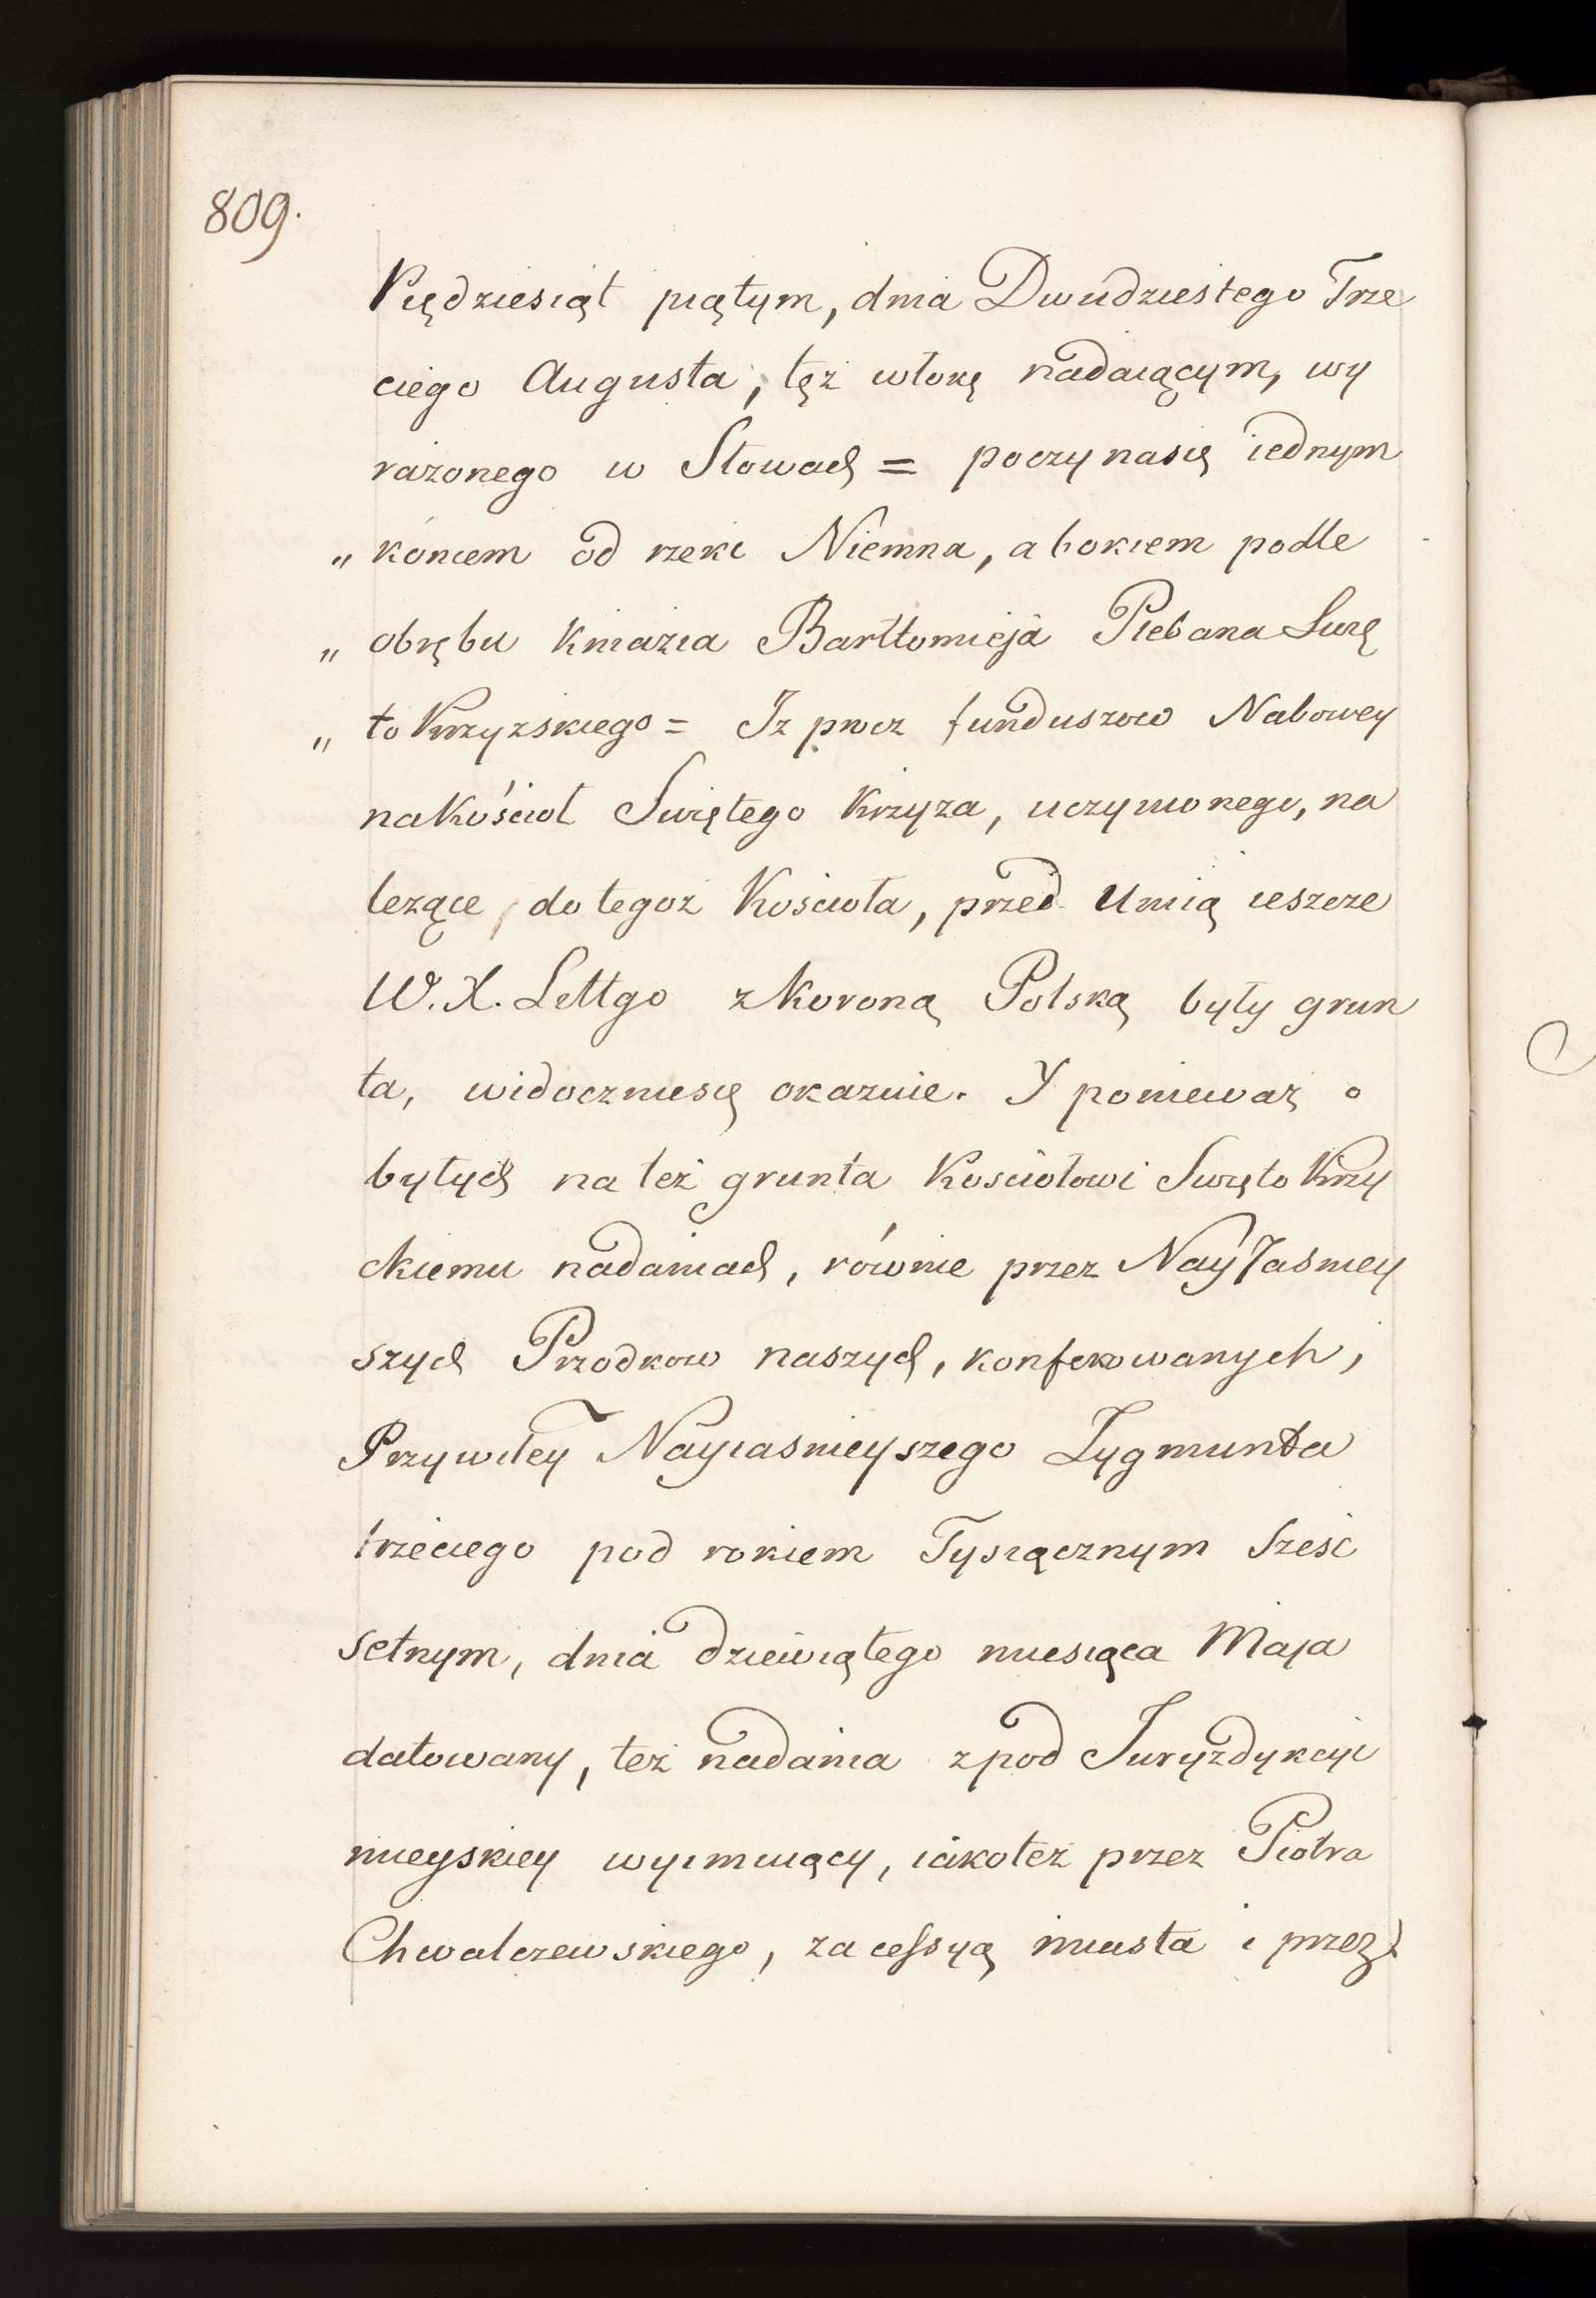 809.
Piędziesiąt piątym, dnia Dwudziestego Trze
ciego Augusta, tęż włokę nadaiącym, wy
rażonego w Słowach = poczyna się iednym
„ koncem od rzeki Niemna, a bokiem podle
„ obrębu Kniazia Bartłomieja Plebana Swię
„ to Krzyzskiego = Iz procz funduszow Nabowey
na Kościoł Swiętego Krzyza, uczynionego, na
lezące, do tegoż Kościoła, przed Unią ieszcze
W. X. Littgo z Koroną Polską były grun
ta, widocznie się okazuie. Y ponieważ o
byłych na też grunta Kościołowi Swięto Krzy
ckiemu nadaniach, równie przez Nay Jasniey
szych Przodkow naszych, konferowanych,
Przywiley Nayiasnieyszego Zygmunta
trzeciego pod rokiem Tysiącznym Sześć
setnym, dnia dziewiątego miesiąca Maja
datowany, też nadania z pod Juryzdykcyi
mieyskiey wyimuiący, iako też przez Piotra
Chwalczewskiego, za cessyą miasta i przez